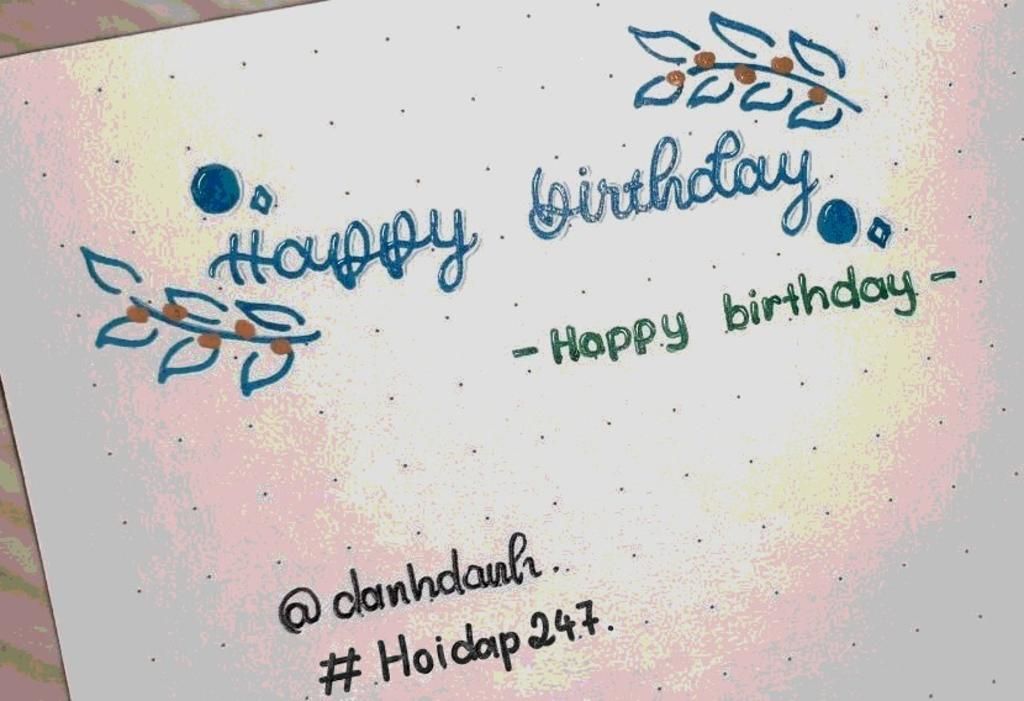 Happy birthday
- Happy birthday -
@danhdanh.
# Hoidap247.